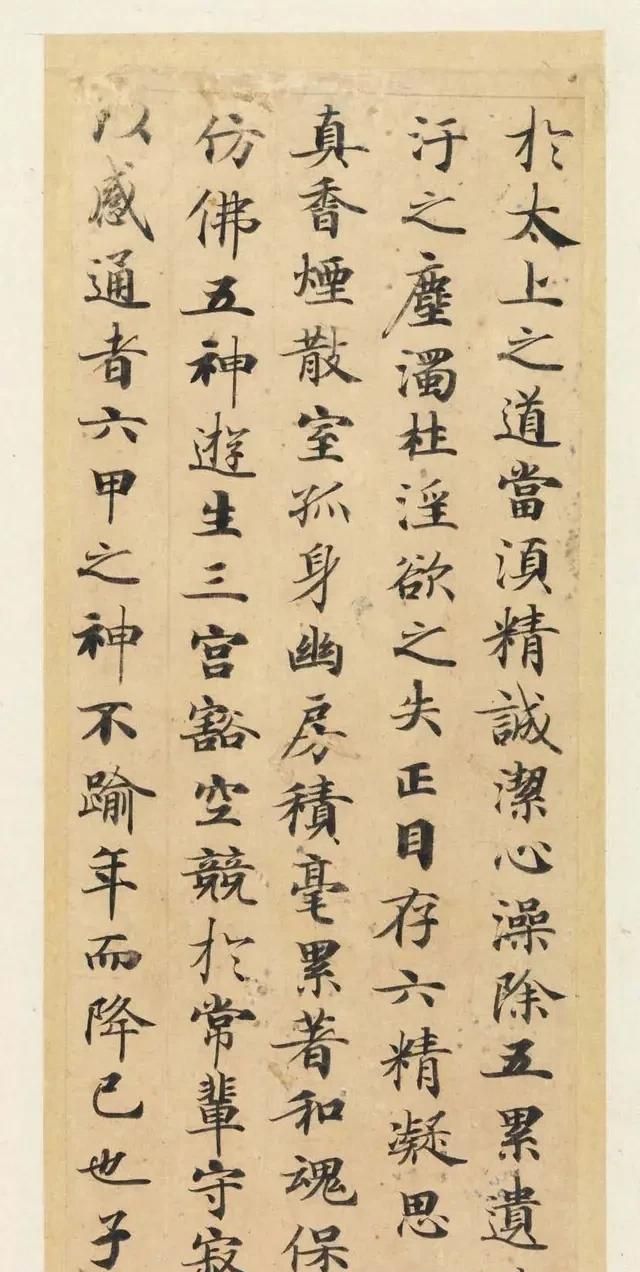 於太上之道當須精誠潔心澡除五累遺
汙之塵濁杜淫欲之失正目存六精凝思
真香煙散室孤身幽房積毫累著和魂保
仿佛五神遊生三宮豁空競於常輩守寂
以感通者六甲之神不踰年而降已也子